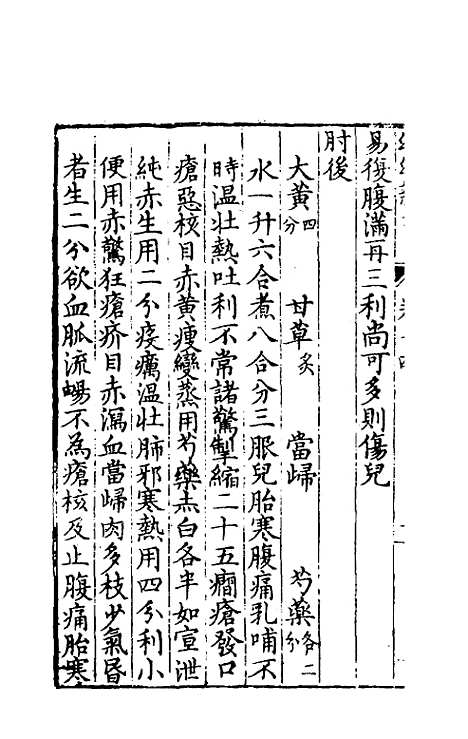 易復腹滿再三利尚可多則傷兒
肘後
大黃四分 甘草炙 當歸 芍藥各二分
水一升六合煮八合分三服兒胎寒腹痛乳哺不
時温壮熱吐利不常諸驚掣縮二十五癇瘡發口
瘡惡核目赤黃瘦變蒸用芍藥赤白各半如宣泄
純赤生用二分疫癘温壮肺邪寒熱用四分利小
便用赤驚狂瘡疥目赤瀉血當歸肉多枝少氣昏
者生二分欲血脈流暢不為瘡核及止腹痛胎寒